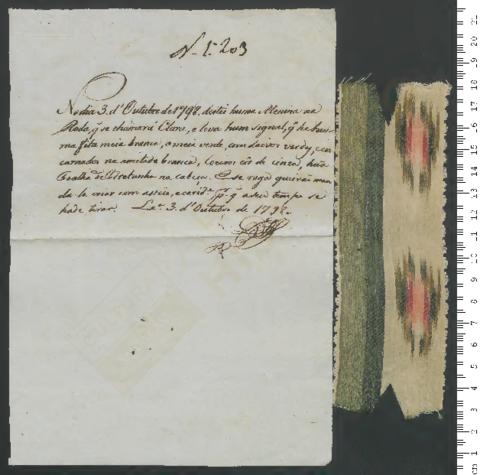 N. 1203
No dia 3. d'Outubro de 1798, deitei huma Menina na
Roda, q̃ se chamará Clara, e leva hum signal, q̃ he hu-
ma fita meia branca, a meia verde, com lavor verde, en-
carnado na ametade branca, cor de cinza, huã
toalha de Bretanha na cabeça. E se roga queirão man-
da la criar com asseio, e carid.e q̃ a seu tempo se
hade tirar. L.xa 3. d'Outubro de 1798.